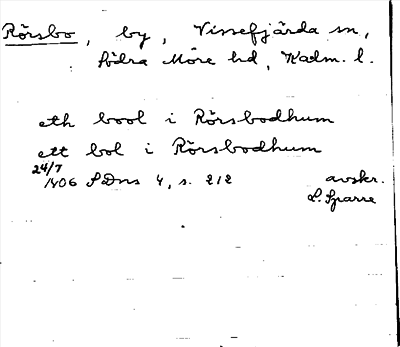 Rörsbo, by, Vissefjärda sn,
Södra Möre hd, Kalm. l.
eth bool i Rörsbodhum
ett bol i Rörsbodhum
24/7
1406 SDns 4, s. 212 avskr.
L. Sparre